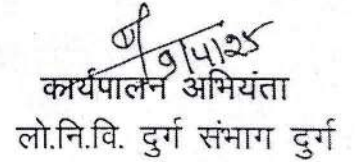 9/4/25
कार्यपालन अभियंता
लो.नि.वि. दुर्ग संभाग दुर्ग